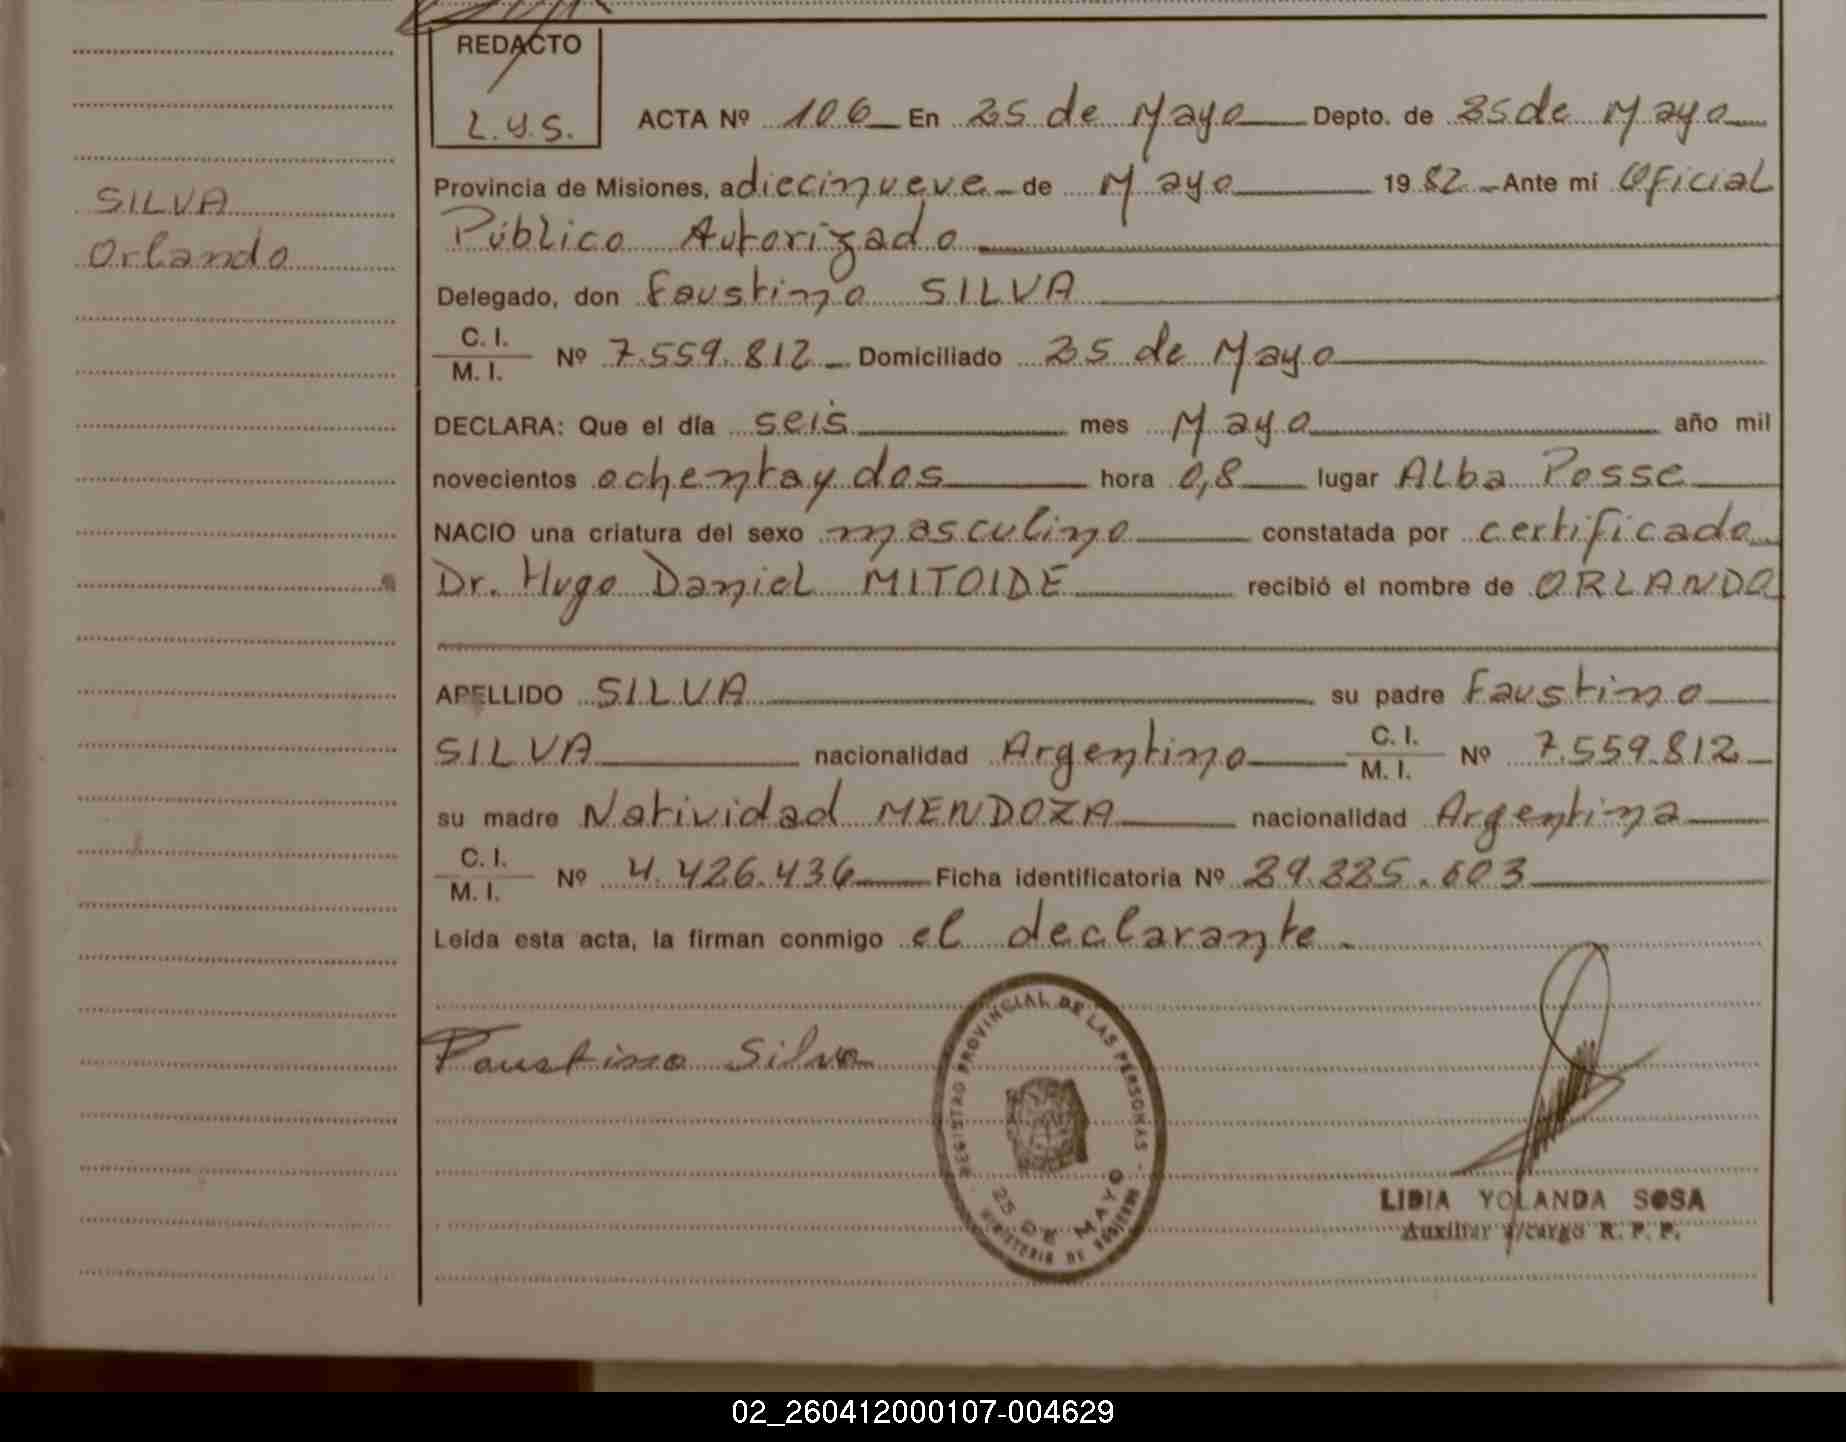 REDACTO
L.Y.S.
ACTA Nº 106 En 25 de Mayo Depto. de 25 de Mayo
Provincia de Misiones, a diecinueve de Mayo 1982 Ante mí Oficial
Público Autorizado
SILVA
Orlando
Delegado, don Faustino SILVA
C. I.
M. I. Nº 7.559.812 Domiciliado 25 de Mayo
DECLARA: Que el día seis mes Mayo año mil
novecientos ochenta y dos hora 0,8 lugar Alba Posse
NACIO una criatura del sexo masculino constatada por certificado
Dr. Hugo Daniel MITOIDE recibió el nombre de ORLANDO
APELLIDO SILVA su padre Faustino
SILVA nacionalidad Argentino C. I. M. I. Nº 7.559.812
su madre Natividad MENDOZA nacionalidad Argentina
C. I.
M. I. Nº 4.426.436 Ficha identificatoria Nº
Leída esta acta, la firman conmigo el declarante.
Faustino Silva
REGISTRO PROVINCIAL DE LAS PERSONAS
25 DE MAYO
MINISTERIO DE GOBIERNO
LIDIA YOLANDA SOSA
Auxiliar a/cargo R. P. P.
02_260412000107-004629